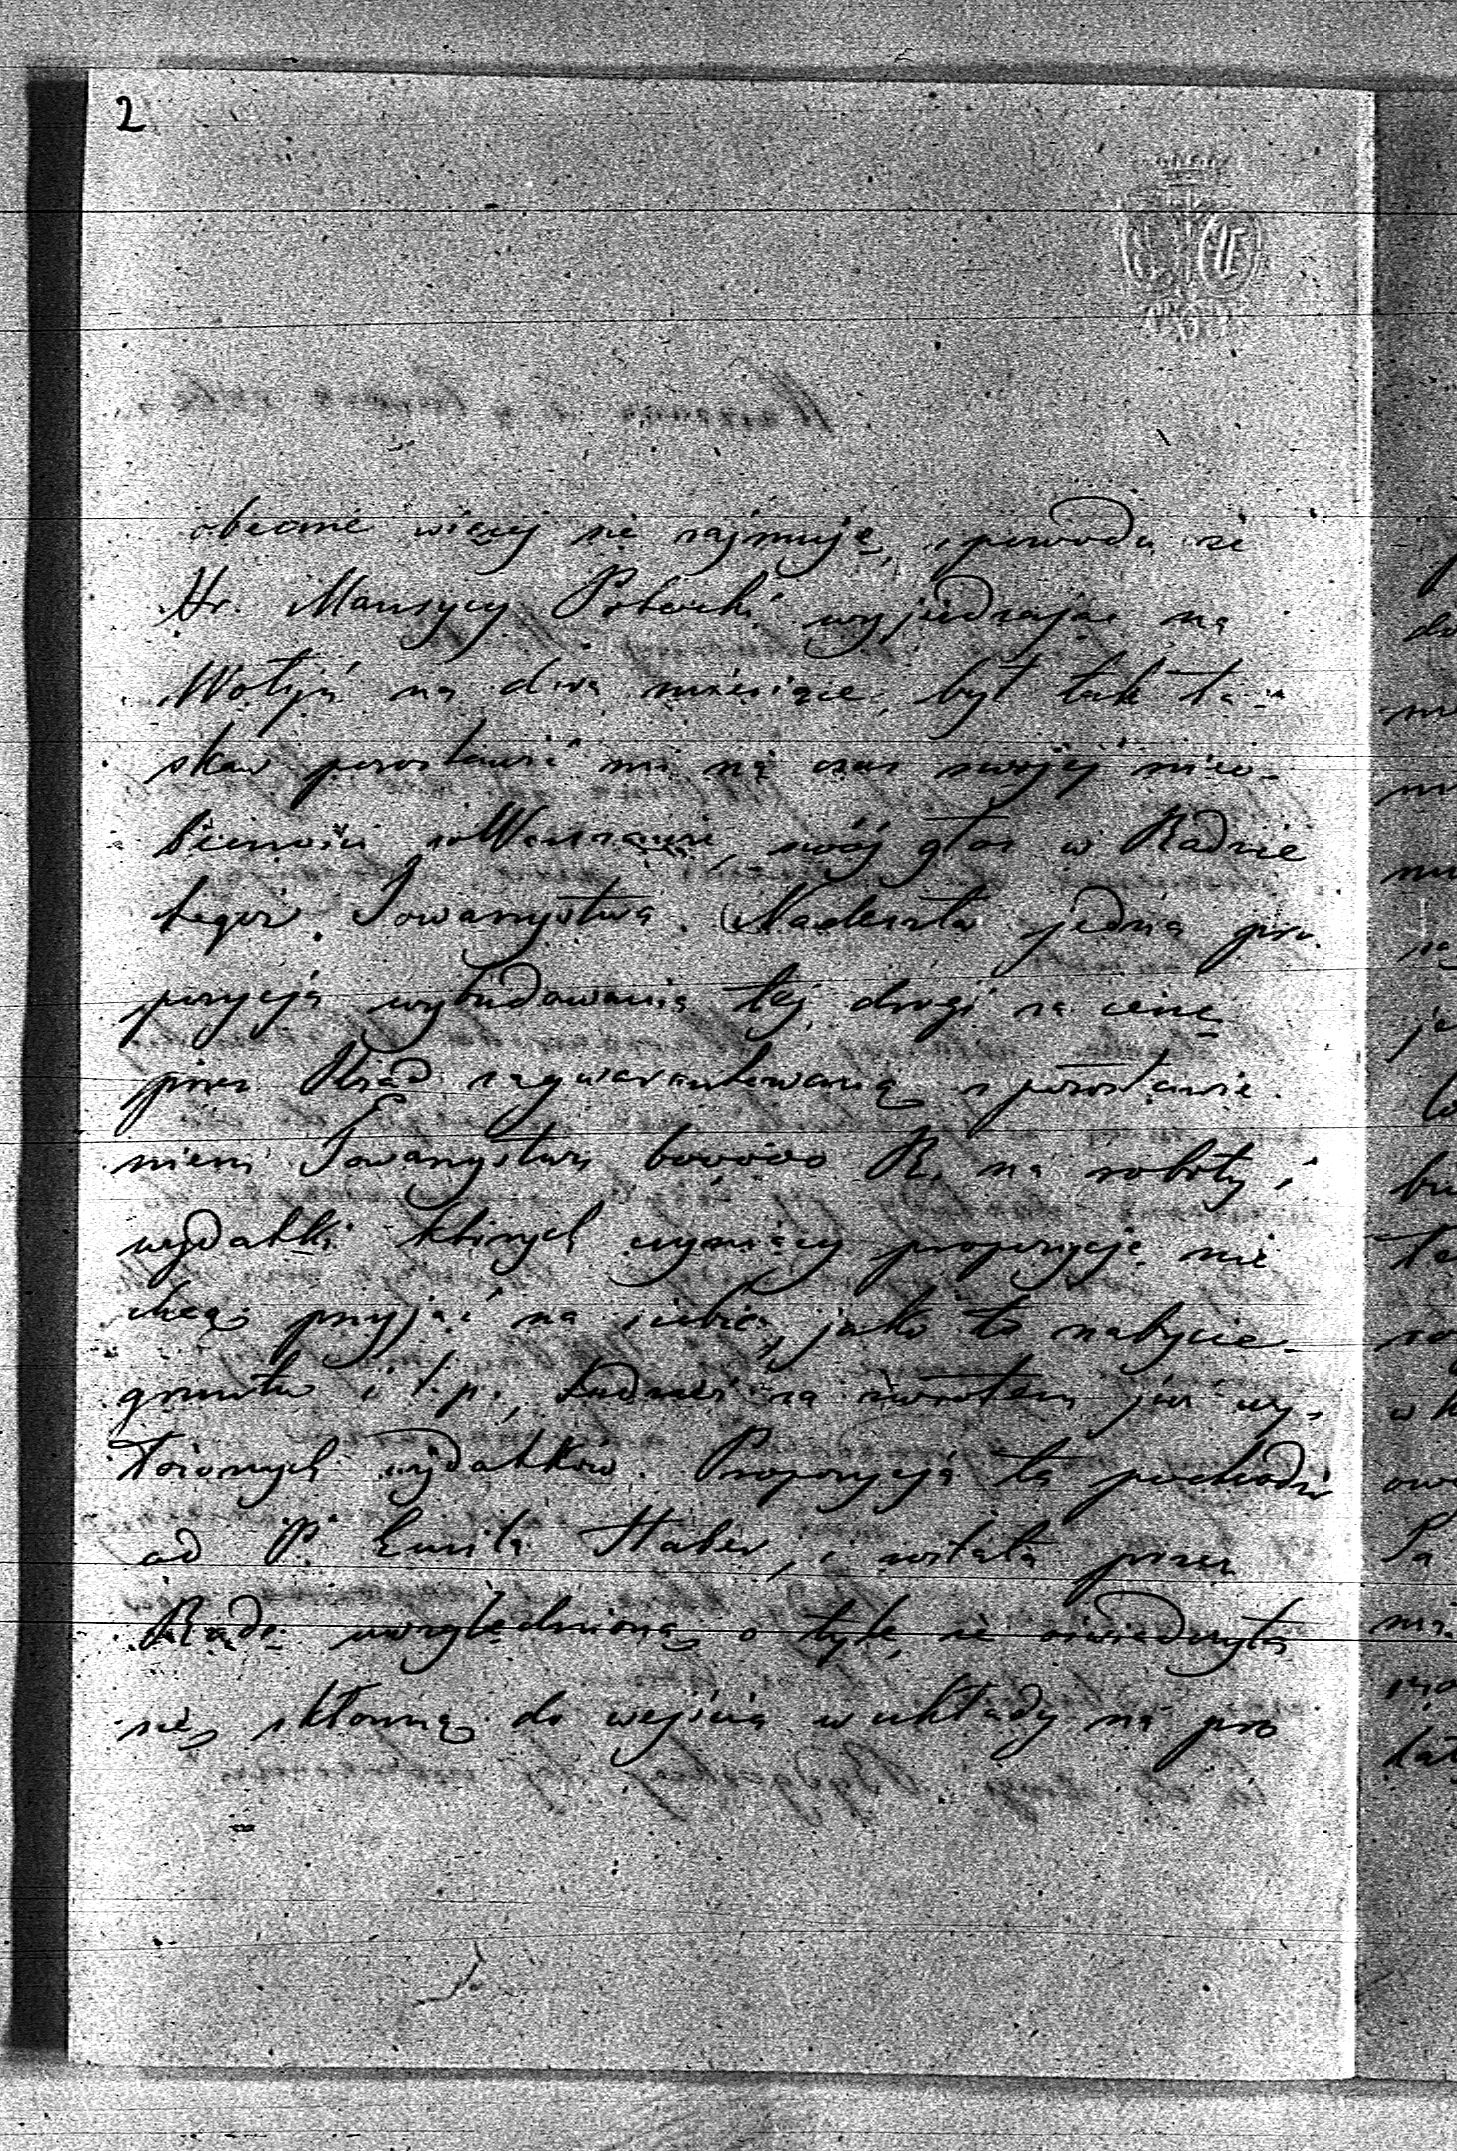 2
obecnie więcej się zajmuję, z powodu że
Hr. Maurycy Potocki wyjeżdżając na
Wołyń na dwa miesiące, był tak ła-
skaw pozostawić mi na czas swojej nieo-
becności w Warszawie, swój głos w Radzie
tegoż Towarzystwa. Nadeszła jedna pro-
pozycja wybudowania tej drogi za cenę
przez Rząd zagwarantowaną z pozostawie-
niem Towarzystwu 600000 R. na roboty i
wydatki których czyniący propozycję nie
chcą przyjąć na siebie, jako to nabycie
gruntu i t. p., tudzież za zwrotem już wy-
łożonych wydatków. Propozycja ta pochodzi
od P. Emila Haber, i została przez
Radę uwzględnioną o tyle, że oświadczyła
się skłonną do wejścia w układy na pro